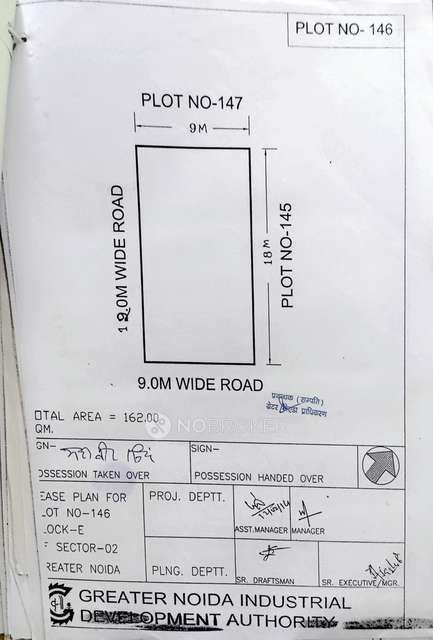 PLOT NO- 146
PLOT NO-147
9M
12.0M WIDE ROAD
18M
PLOT NO-145
9.0M WIDE ROAD
प्रबन्धक (सम्पत्ति)
ग्रेटर नोएडा प्राधिकरण
OTAL AREA = 162.00
QM.
NOBROKER
GN-
SIGN-
OSSESSION TAKEN OVER
POSSESSION HANDED OVER
EASE PLAN FOR
LOT NO-146
LOCK-E
SECTOR-02
REATER NOIDA
PROJ. DEPTT.
ASST.MANAGER MANAGER
PLNG. DEPTT.
SR. DRAFTSMAN
SR. EXECUTIVE/MGR.
GREATER NOIDA INDUSTRIAL
DEVELOPMENT AUTHORITY